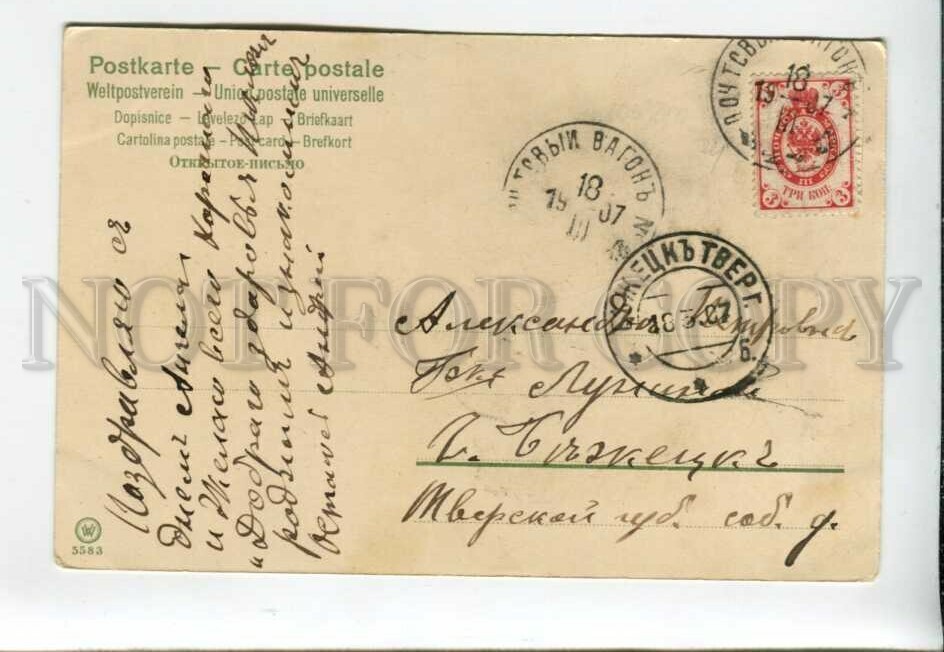 Postkarte — Carte postale
Weltpostverein — Union postale universelle
Dopisnice — Levelező-Lap — Briefkaart
Cartolina postale — Postcard — Brefkort
Открытое-письмо
Поздравляю съ
днемъ Ангела
и Желаю всего Хорошаго
"Добраго здоровья
родными и знакомыми
остаюсь Андрей
5583
ПОЧТОВЫЙ ВАГОНЪ
18
1907
III
ТРИ КОП
3 3
III
ПОЧТОВЫЙ ВАГОНЪ №
18
1907
III
БѢЖЕЦКЪ ТВЕРГ.
18 3 07
Александра Петровна
Лу
Г. Бѣжецкъ
Тверской губ. соб. д.
NOT FOR COPY